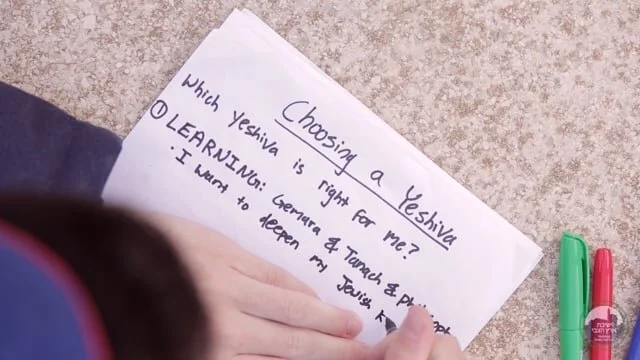 Choosing a Yeshiva
Which yeshiva is right for me?
① LEARNING: Gemara & Tanach &
• I want to deepen my Jewish